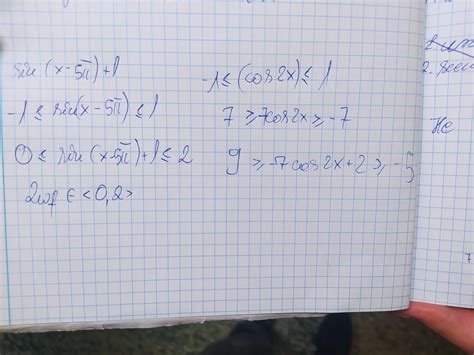 sin(x-5π)+1
-1 ≤ sin(x-5π) ≤ 1
0 ≤ sin(x-5π)+1 ≤ 2
Zwf ∈ <0,2>
-1 ≤ (cos2x) ≤ 1
7 ≥ -7cos2x ≥ -7
9 ≥ -7cos2x+2 ≥ -5
2.
He
7